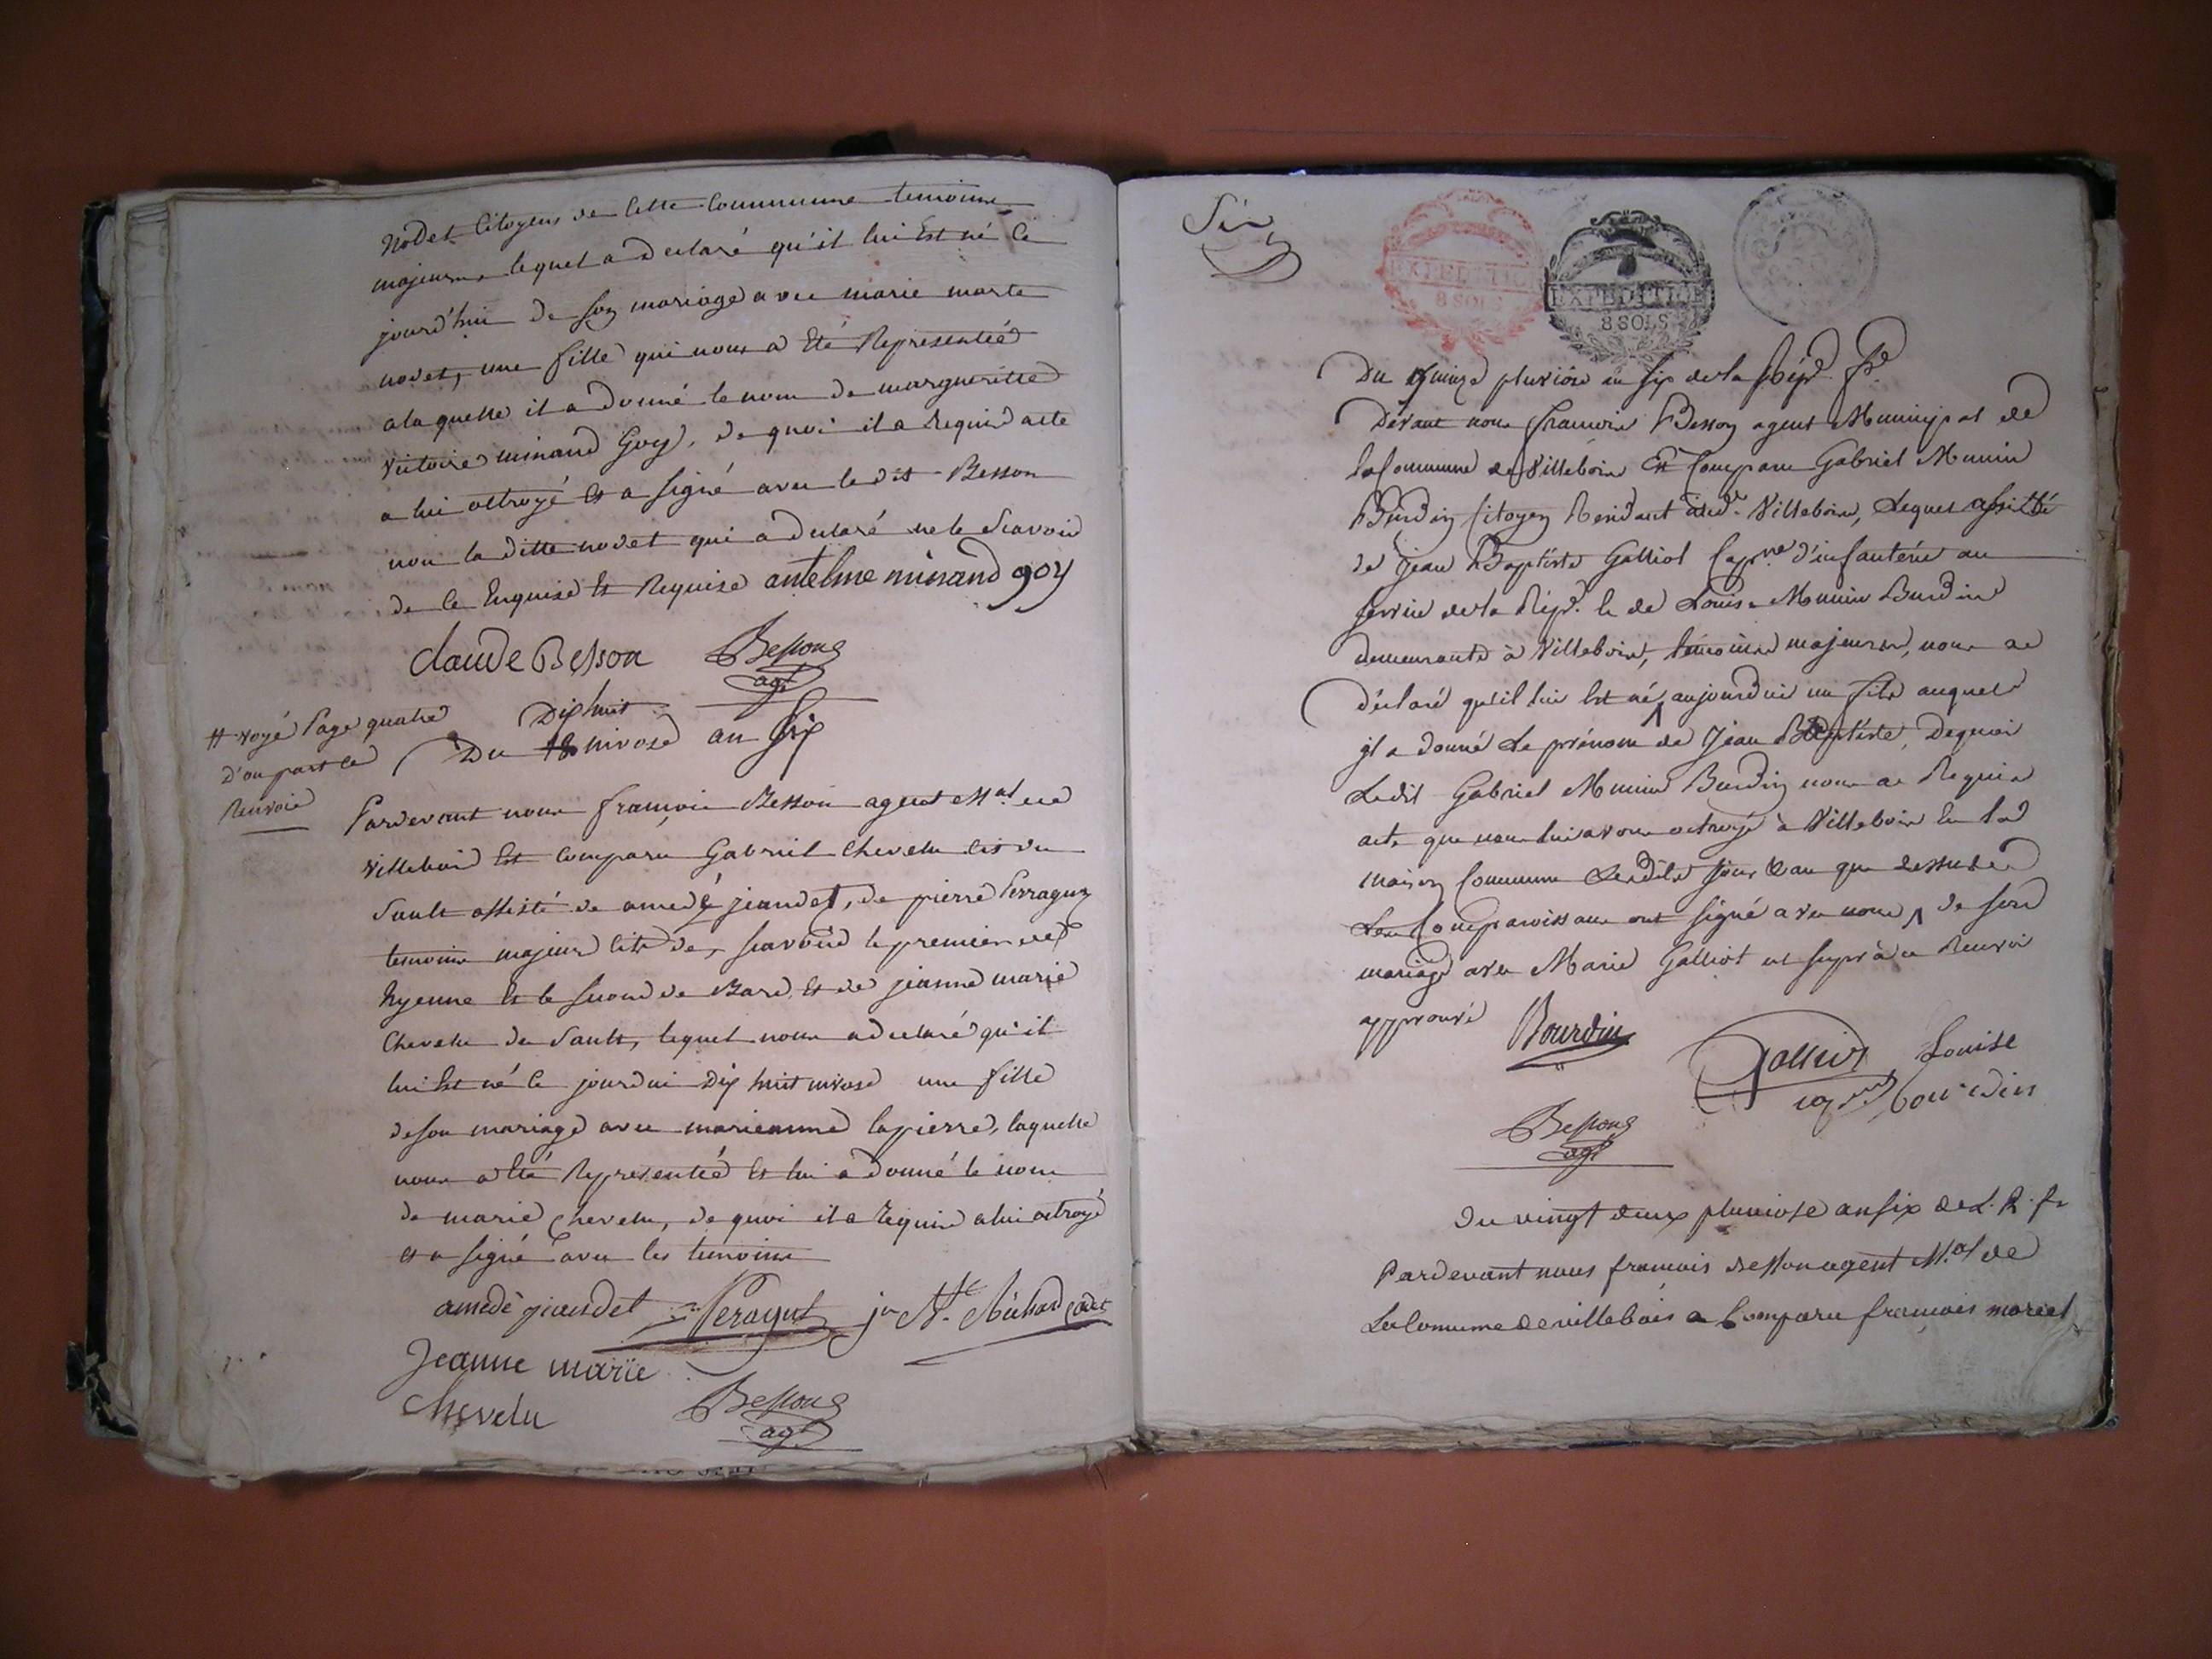 nodet Citoyens de cette Commune temoins
majeurs, lequel a declaré qu'il lui Est né Ce
jourd'hui de son mariage avec marie marte
nodet, une fille qui nous a Eté Representée
a laquelle il a donné le nom de margueritte
victoire minand Goy, de quoi il a requis acte
a lui octroyé et a signé avec le dit Besson
non la ditte nodet qui a declaré ne le Scavoir
de ce Enquise Et Requise antelme minand goy
Claude Besson Besson
agt
# voyé Page quatre
d'ou part ce
Renvoie
Dix huit
Du 18 nivose an Six
Pardevant nous françois Besson agent Mal de
villebois Est comparu Gabriel Chevelu cit de
Sault assisté de amedé jeandet, de pierre Perragut
temoins majeurs cit de, scavoir le premier de
hyenne et le second de Bard et de jeanne marie
Chevelu de Sault, lequel nous a declaré qu'il
lui Est né Ce jourdui Dix huit nivose une fille
de son mariage avec marieanne lapierre, laquelle
nous a Eté Representée Et lui a donné le nom
de marie Chevelu, de quoi il a requis a lui octroyé
et a signé avec les temoins
amedé jeandet Peragut jn Bte Michard cadet
Jeanne marie
chevelu
Besson
agt
Six
EXPEDITION
8 SOLS
EXPEDITION
8 SOLS
Du quinze pluviôse an six de la Rép. fr.
Devant nous francois Besson agent Municipal de
la Commune de Villebois Est Comparu Gabriel Munin
Burdin Citoyen Residant aud. Villebois, Lequel assisté
de Jean Baptiste Galliot Capne d'infanterie au
service de la Rép. & de Louise Munin Burdin
demeurante à Villebois, témoins majeurs, nous a
déclaré qu'il lui Est né aujourdui un fils auquel
jl a donné Le prénom de Jean Baptiste, Dequoi
Ledit Gabriel Munin Burdin nous a Requis
acte que nous lui avons octroyé à Villebois En la
maison Commune Lesdits jour & an que dessus &
Les Comparoissans ont signé avec nous de son
mariage avec Marie Galliot cy supra a Renvoi
approuvé Bourdin
Galliot Louise
bourdin
Besson
agt
du vingt deux pluviose an six de L. R. fr
Pardevant nous francois Besson agent M.al de
La Comume de villebois a Comparu francois morcel